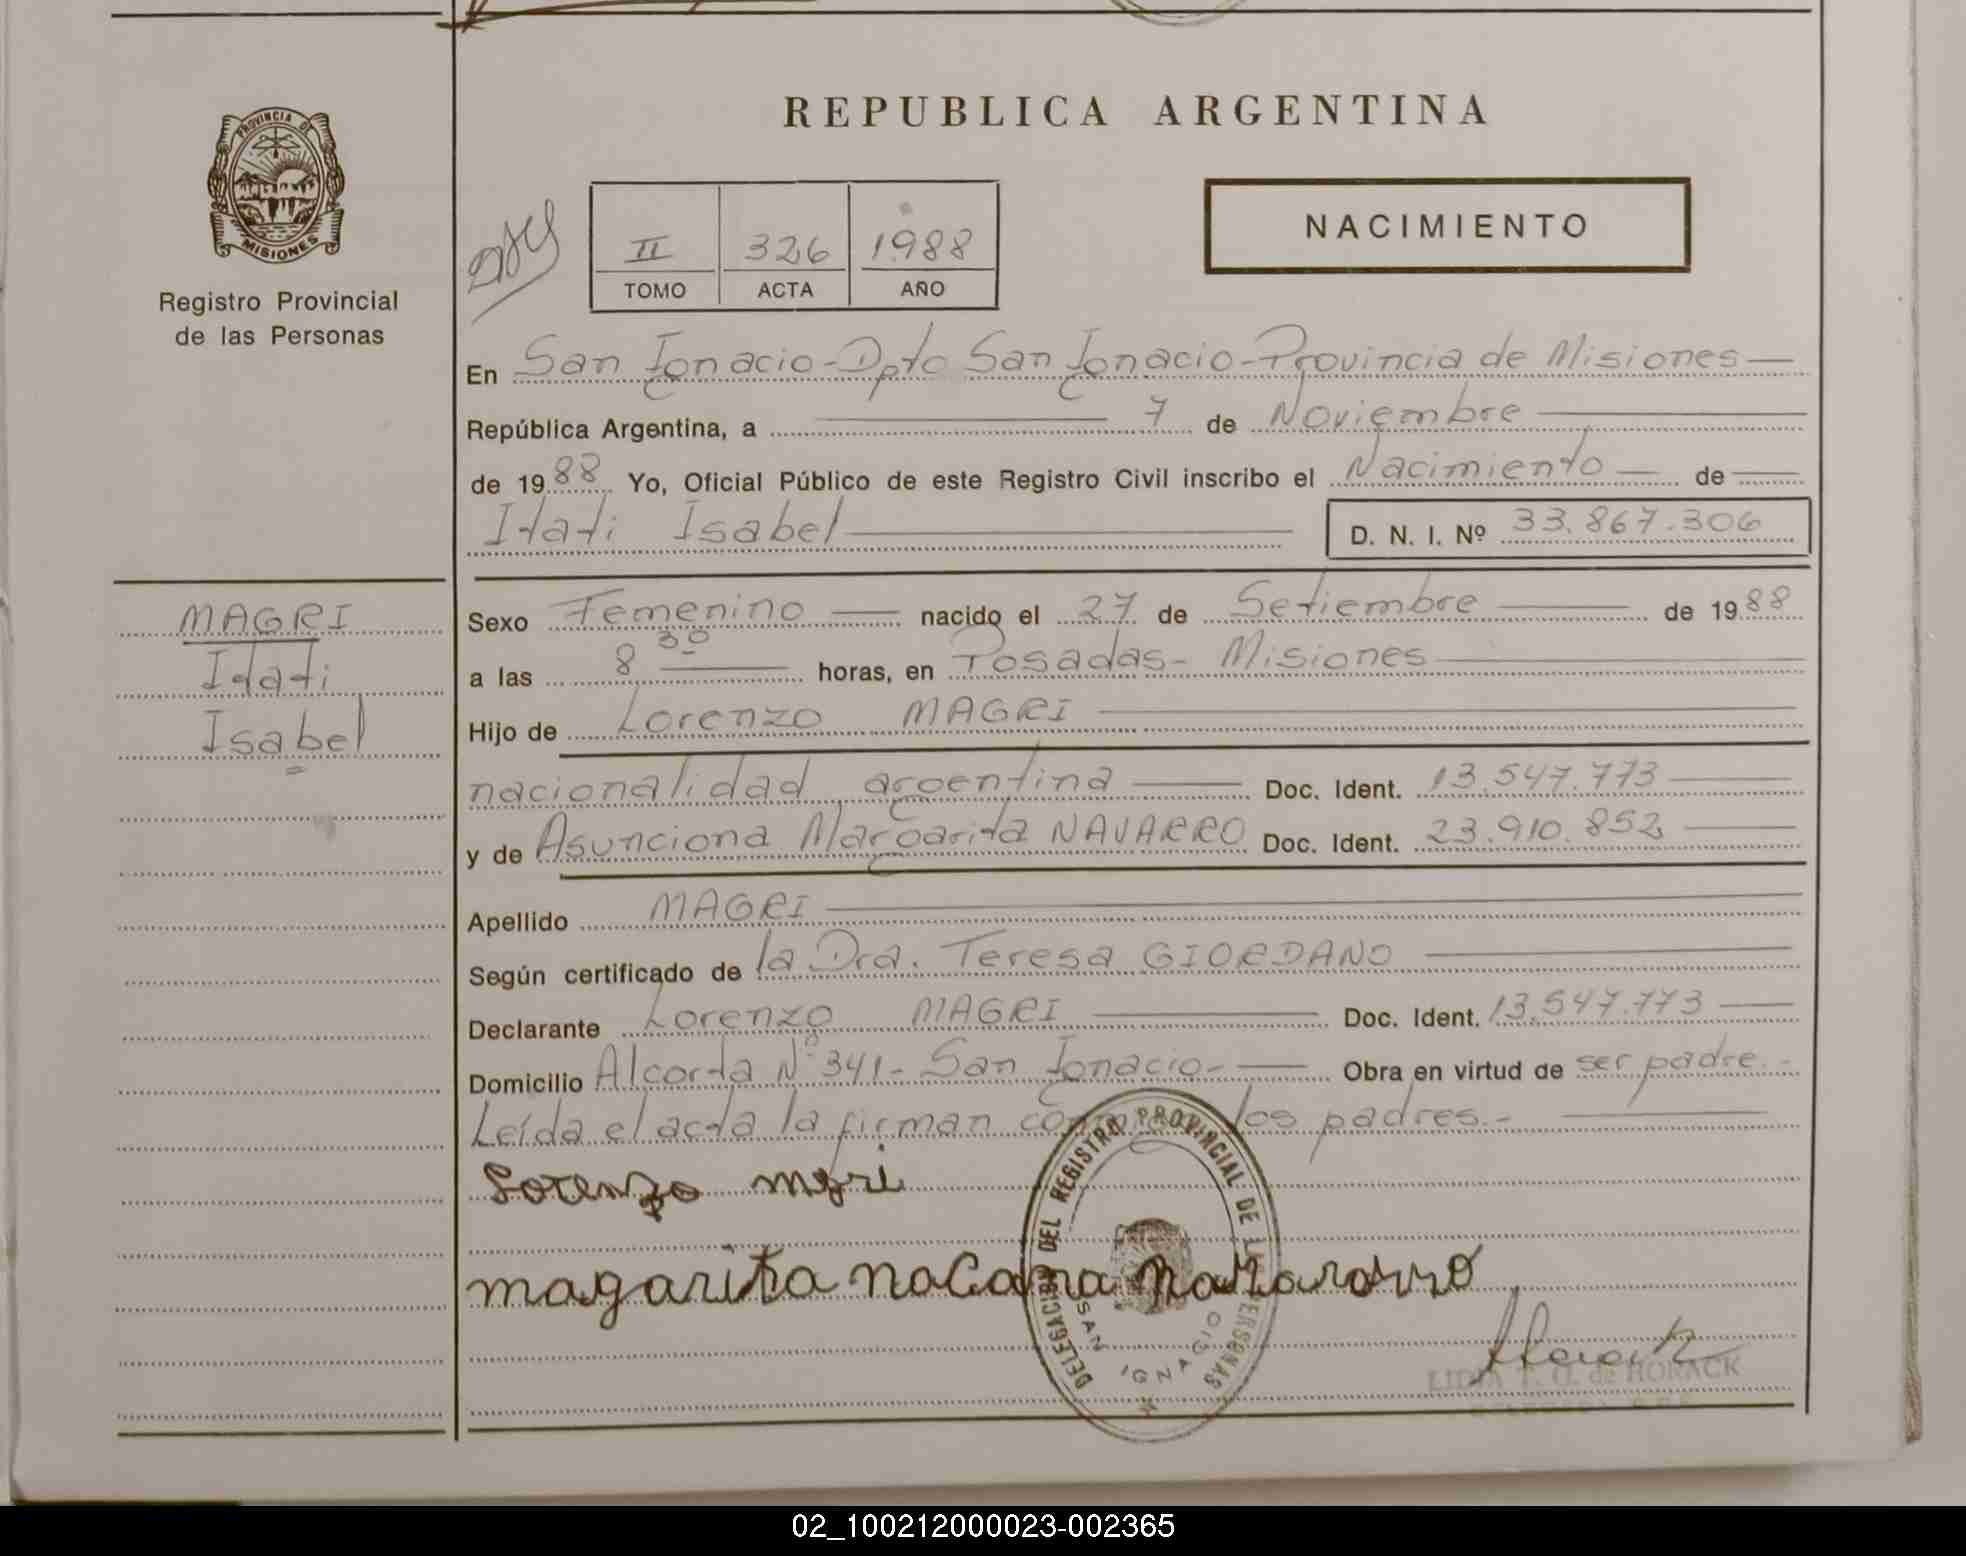 REPUBLICA ARGENTINA
PROVINCIA DE MISIONES
Registro Provincial
de las Personas
II 326 1988
TOMO ACTA AÑO
NACIMIENTO
En San Ignacio-Dpto San Ignacio-Provincia de Misiones
República Argentina, a 7 de Noviembre
de 1988 Yo, Oficial Público de este Registro Civil inscribo el Nacimiento de
Itati Isabel D. N. I. Nº 33.867.306
MAGRI
Itati
Isabel
Sexo Femenino nacido el 27 de Setiembre de 1988
a las 8 30 horas, en Posadas- Misiones
Hijo de Lorenzo MAGRI
nacionalidad argentina Doc. Ident. 13.547.773
y de Asunciona Margarita NAVARRO Doc. Ident. 23.910.852
Apellido MAGRI
Según certificado de la Dra. Teresa GIORDANO
Declarante Lorenzo MAGRI Doc. Ident. 13.547.773
Domicilio Alcorta Nº 341- San Ignacio- Obra en virtud de ser padre.-
Leída el acta la firman conmigo los padres.-
Lorenzo mgri
magarita
DELEGACION DEL REGISTRO PROVINCIAL DE LAS PERSONAS
SAN IGNACIO
LIDIA T. O. de HORACK
02_100212000023-002365